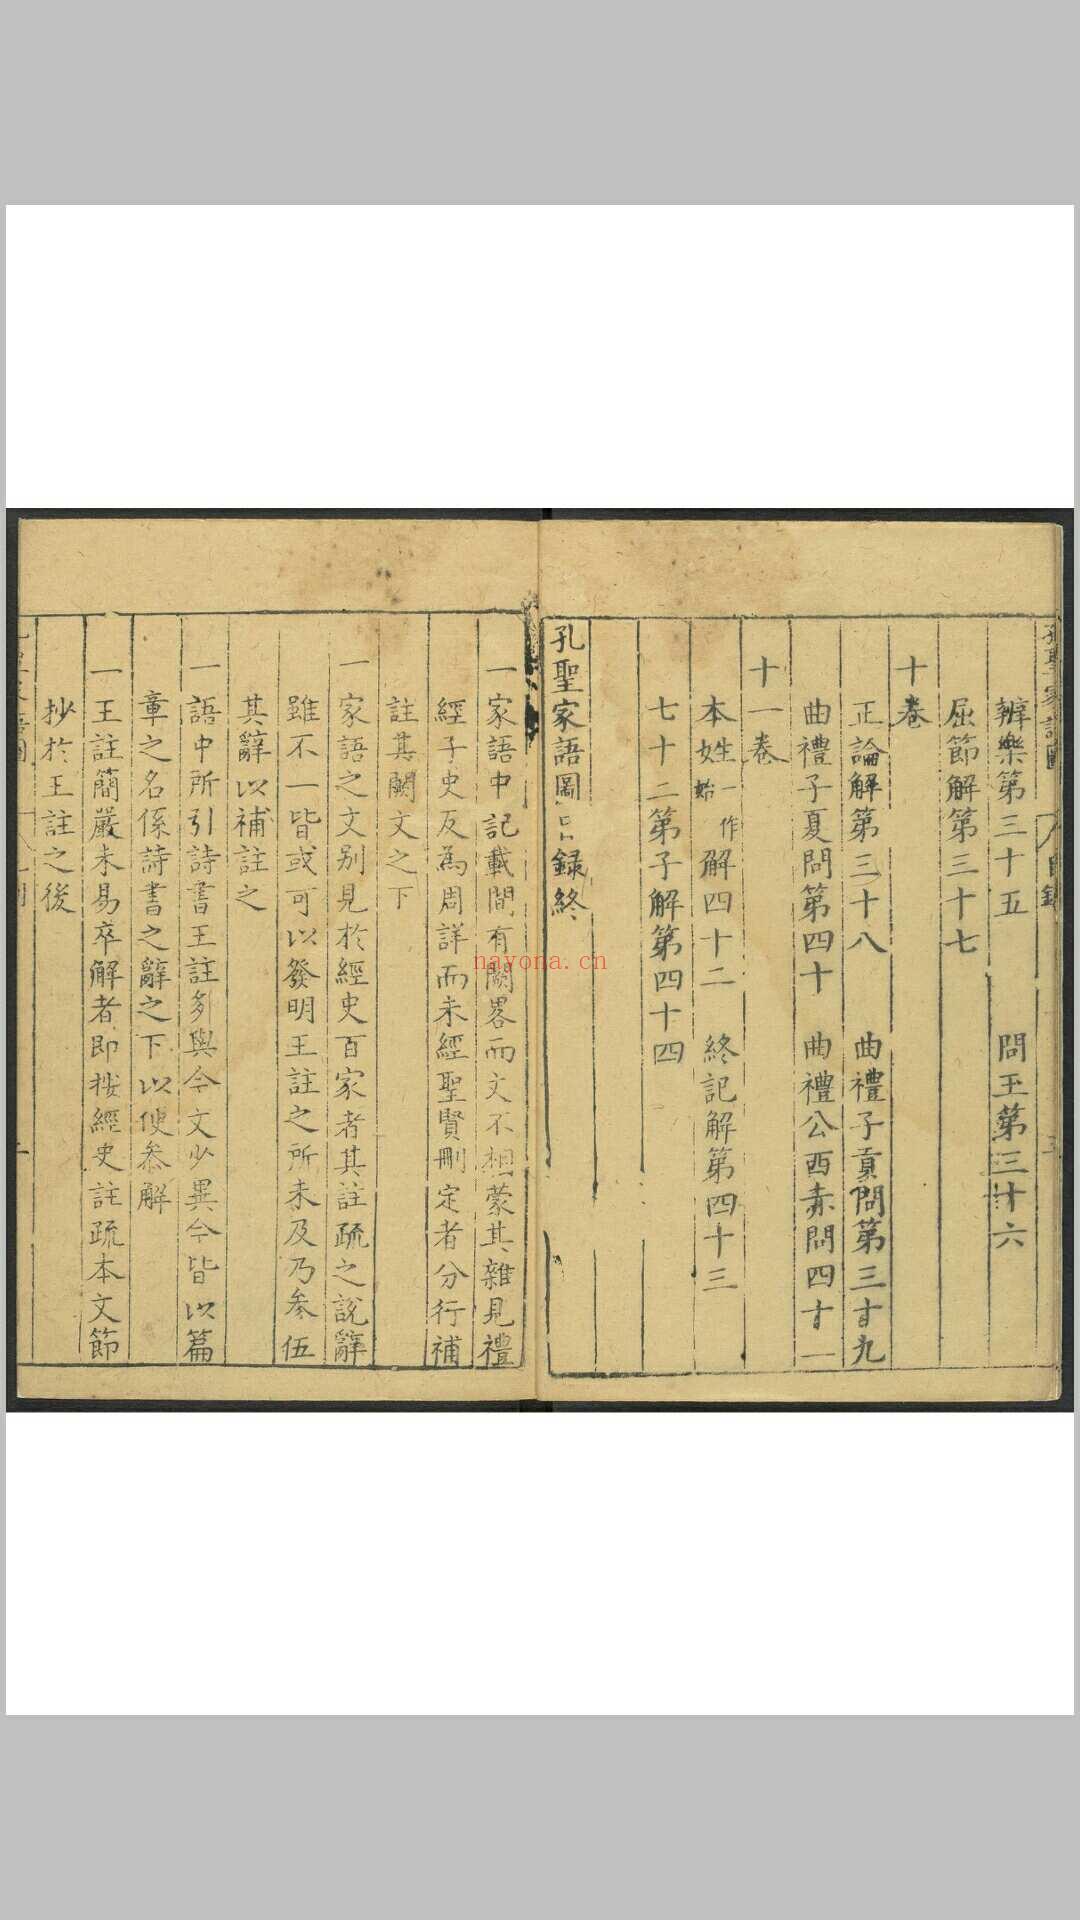 孔聖家語圖 目錄
辨樂第三十五 問玉第三十六
屈節解第三十七
十卷
正論解第三十八 曲禮子貢問第三十九
曲禮子夏問第四十 曲禮公西赤問四十一
十一卷
本姓一作始解四十二 終記解第四十三
七十二第子解第四十四
孔聖家語圖目録終
一家語中記載間有闕畧而文不相蒙其雜見禮
經子史反為周詳而未經聖賢刪定者分行補
註其闕文之下
一家語之文別見於經史百家者其註疏之說辭
雖不一皆或可以發明王註之所未及乃叅伍
其辭以補註之
一語中所引詩書王註多與今文少異今皆以篇
章之名係詩書之辭之下以便叅解
一王註簡嚴未易卒解者即按經史註疏本文節
抄於王註之後
nayona.cn